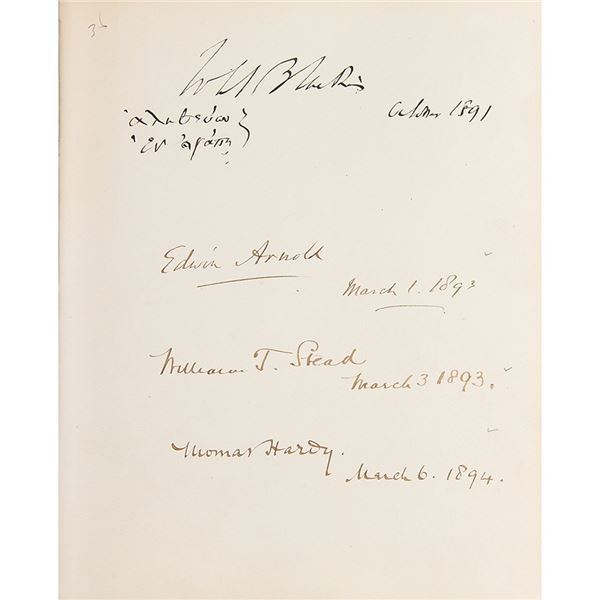 Blackie
ἀληθεύων
ἐν ἀγάπῃ
October 1891
Edwin Arnold
March 1. 1893
William T. Stead
March 3 1893.
Thomas Hardy.
March 6. 1894.